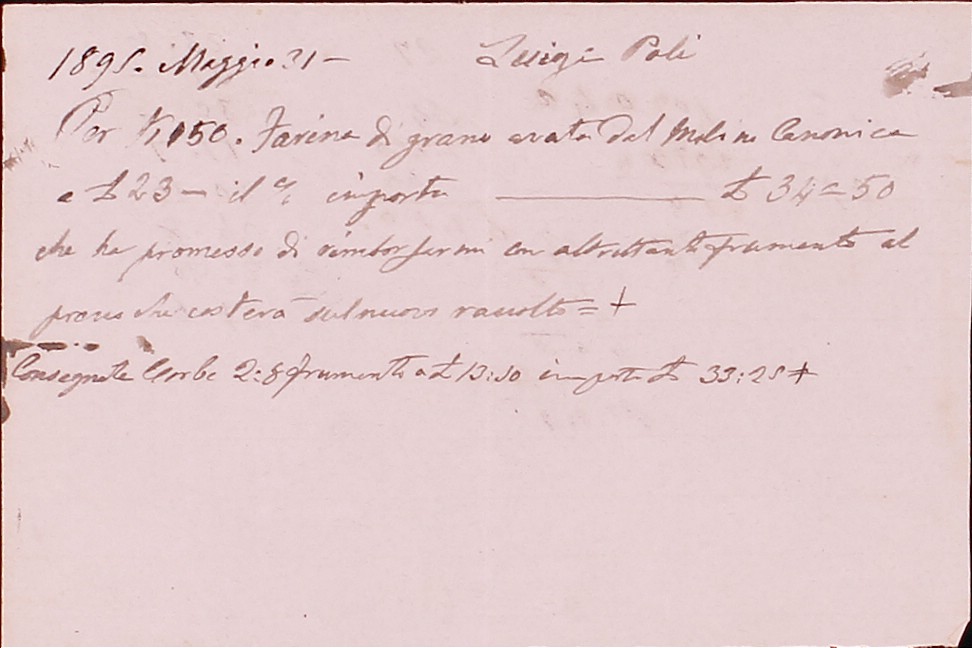 1895. Maggio 31 - Luigi Poli
Per K 150. Farina di grano avuta dal Molino Canonica
a £ 23 - il % importa £ 34 = 50
che ha promesso di rimborsarmi con altrettanto frumento al
prezzo che costerà sul nuovo raccolto = +
Consegnato Corbe 2:8 frumento a £ 13:30 importa £ 33:25 +